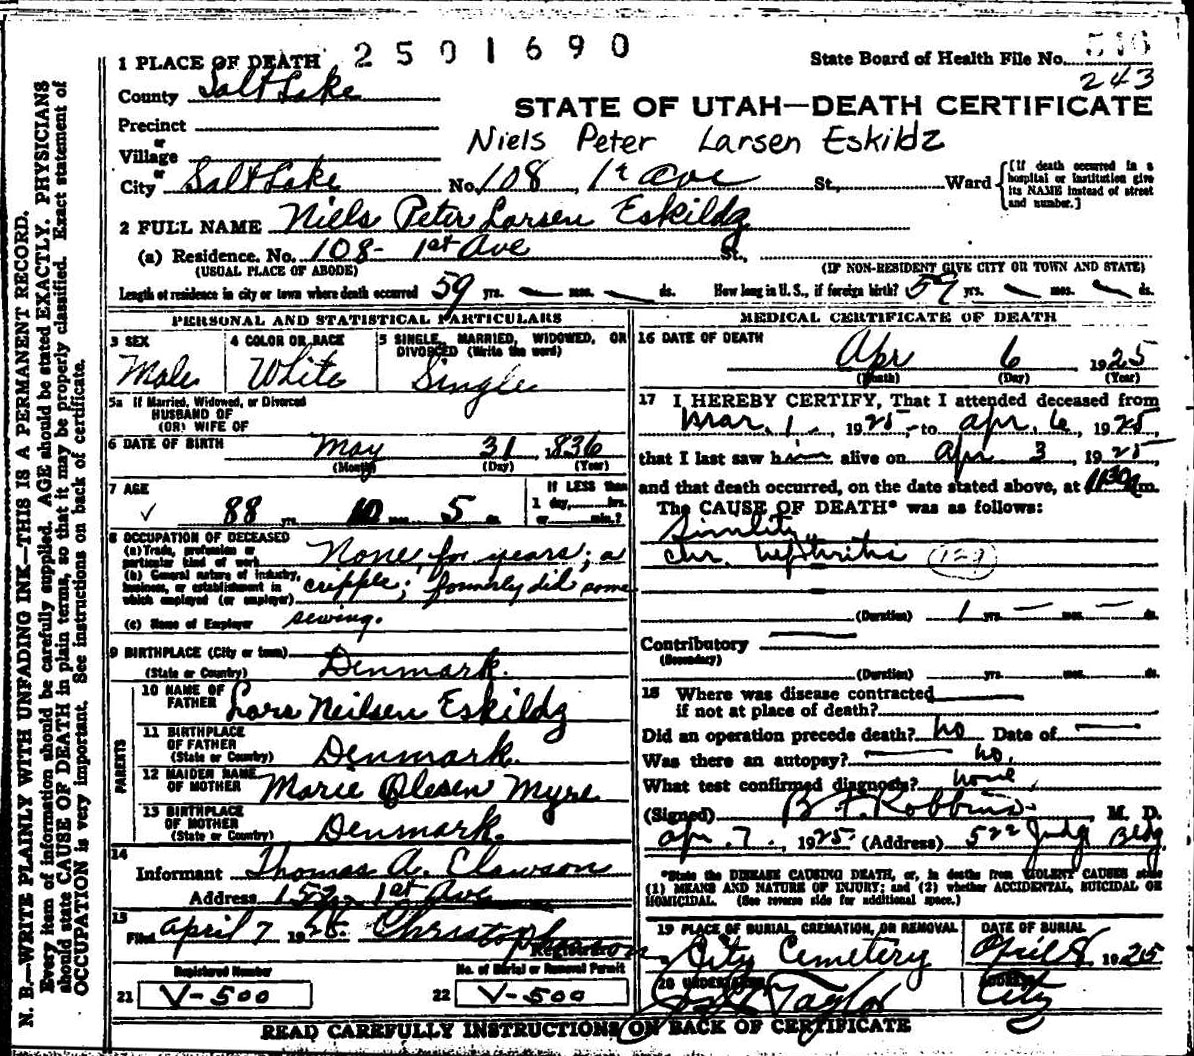 1 PLACE OF DEATH 2501690 State Board of Health File No. 546
County Salt Lake 243
STATE OF UTAH—DEATH CERTIFICATE
Precinct
or
Village Niels Peter Larsen Eskildz
or
City Salt Lake No. 108, 1st Ave St., Ward [If death occurred in a hospital or institution give its NAME instead of street and number.]
2 FULL NAME Niels Peter Larsen Eskildz
(a) Residence. No. 108- 1st Ave St.,
(USUAL PLACE OF ABODE) (IF NON-RESIDENT GIVE CITY OR TOWN AND STATE)
Length of residence in city or town where death occurred 59 yrs. — mos. — ds. How long in U. S., if foreign birth? 59 yrs. — mos. — ds.
PERSONAL AND STATISTICAL PARTICULARS
3 SEX 4 COLOR OR RACE 5 SINGLE, MARRIED, WIDOWED, OR DIVORCED (Write the word)
Male White Single
5a If Married, Widowed, or Divorced
HUSBAND OF
(OR) WIFE OF
6 DATE OF BIRTH May 31, 1836
(Month) (Day) (Year)
7 AGE If LESS than
1 day, hrs.
88 yrs. 10 mos. 5 ds. or min.?
8 OCCUPATION OF DECEASED
(a) Trade, profession or particular kind of work None, for years; a
(b) General nature of industry, business, or establishment in which employed (or employer) cripple; formerly did some
(c) Name of Employer sewing.
9 BIRTHPLACE (City or town)
(State or Country) Denmark.
PARENTS
10 NAME OF FATHER Lars Neilsen Eskildz
11 BIRTHPLACE OF FATHER
(State or Country) Denmark.
12 MAIDEN NAME OF MOTHER Marie Olesen Myre
13 BIRTHPLACE OF MOTHER
(State or Country) Denmark.
14
Informant Thomas A. Clawson
Address 1st Ave
15
Filed April 7 19
Registrar
Registered Number No. of Burial or Removal Permit
21 V-500 22 V-500
MEDICAL CERTIFICATE OF DEATH
16 DATE OF DEATH
Apr 6 1925
(Month) (Day) (Year)
17 I HEREBY CERTIFY, That I attended deceased from
Mar. 1, 1925, to Apr. 6, 1925,
that I last saw him alive on Apr 3 1925,
and that death occurred, on the date stated above, at 11:30 m.
The CAUSE OF DEATH* was as follows:
Senility
chr. nephritis (129)
(Duration) 1 yrs. — mos. — ds.
Contributory
(Secondary)
(Duration) yrs. mos. ds.
18 Where was disease contracted
if not at place of death?
Did an operation precede death? No Date of
Was there an autopsy? No.
What test confirmed diagnosis? None
(Signed) B F Robbins M. D.
Apr. 7., 1925 (Address) 522 Judg Bldg
*State the DISEASE CAUSING DEATH, or, in deaths from VIOLENT CAUSES state
(1) MEANS AND NATURE OF INJURY; and (2) whether ACCIDENTAL, SUICIDAL OR
HOMICIDAL. (See reverse side for additional space.)
19 PLACE OF BURIAL, CREMATION, OR REMOVAL DATE OF BURIAL
City Cemetery April 8, 1925
20 UNDERTAKER ADDRESS
Taylor City
READ CAREFULLY INSTRUCTIONS ON BACK OF CERTIFICATE
N. B.—WRITE PLAINLY WITH UNFADING INK—THIS IS A PERMANENT RECORD.
Every item of information should be carefully supplied. AGE should be stated EXACTLY. PHYSICIANS
should state CAUSE OF DEATH in plain terms, so that it may be properly classified. Exact statement of
OCCUPATION is very important. See instructions on back of certificate.